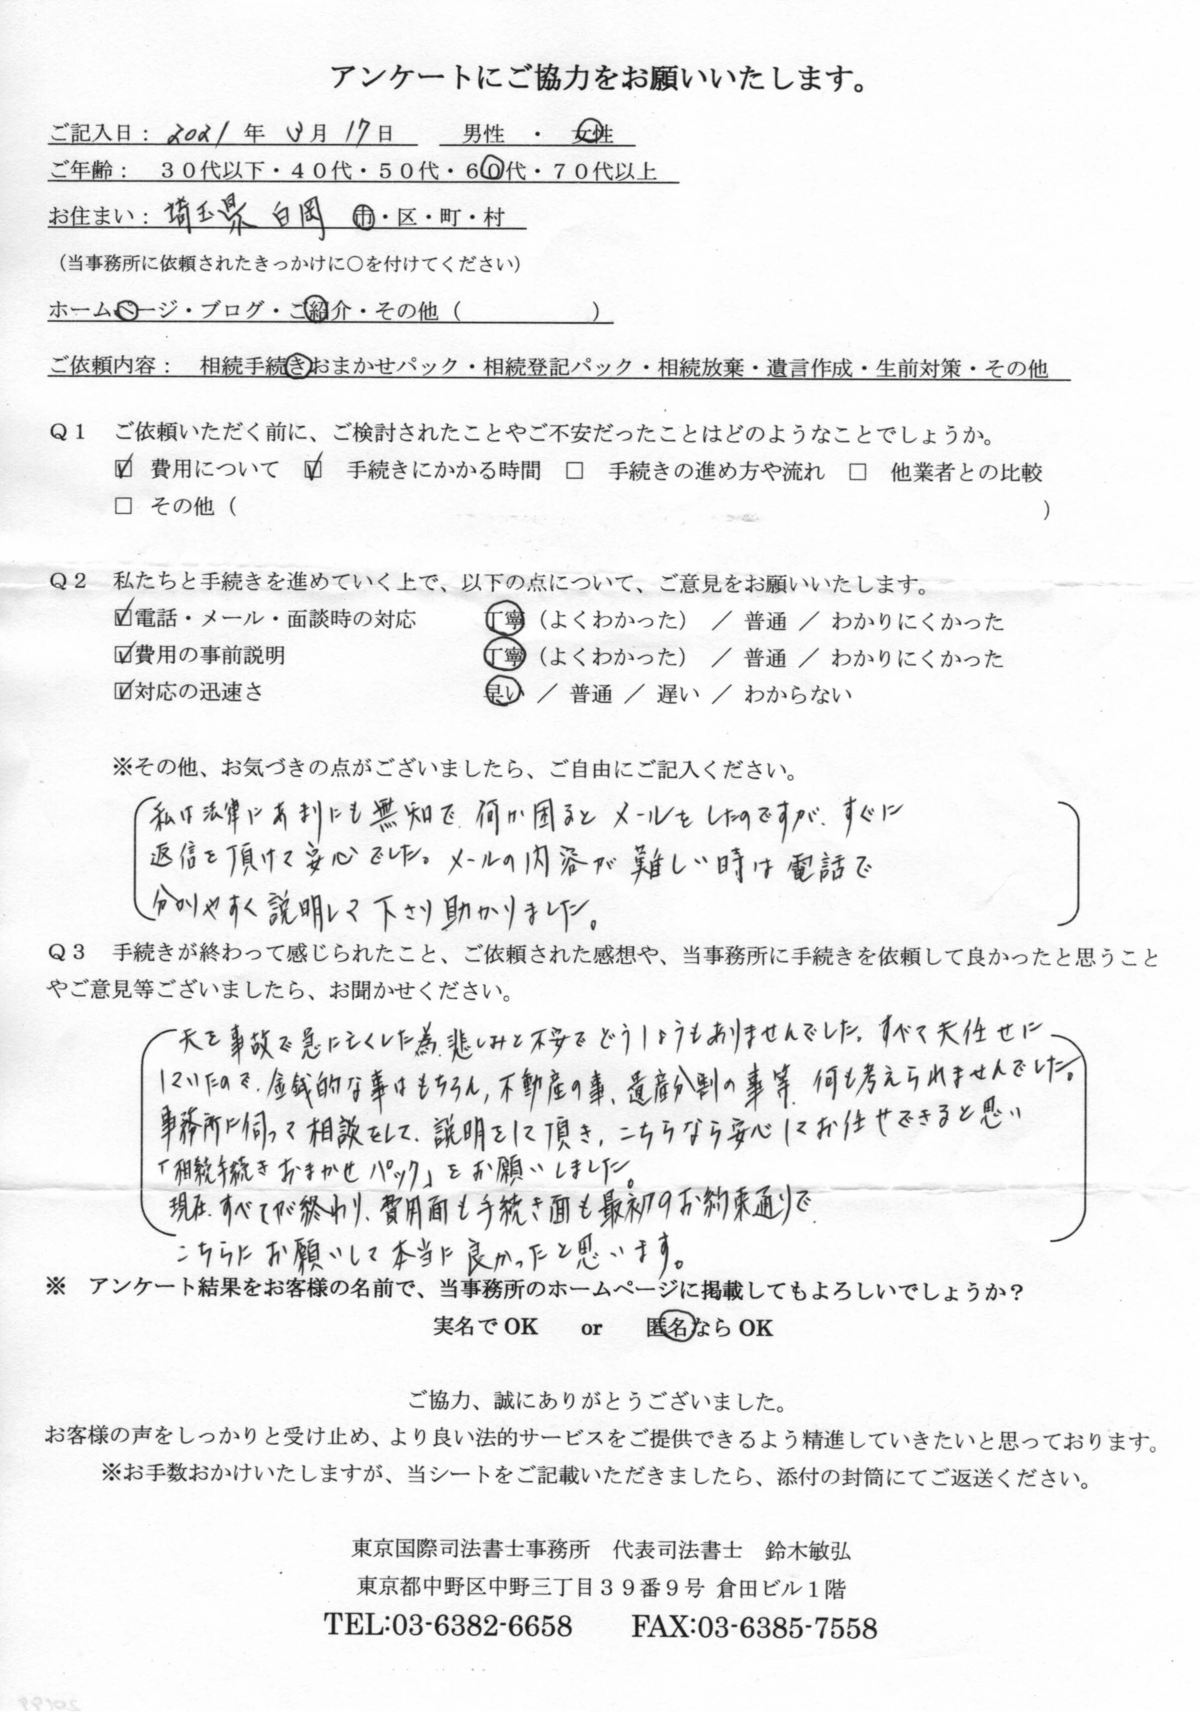 アンケートにご協力をお願いいたします。
ご記入日： 2021 年 3 月 17 日　　男性　・　女性
ご年齢：　３０代以下・４０代・５０代・６０代・７０代以上
お住まい： 埼玉県 白岡　市・区・町・村
（当事務所に依頼されたきっかけに○を付けてください）
ホームページ・ブログ・ご紹介・その他（　　　　　　）
ご依頼内容：　相続手続きおまかせパック・相続登記パック・相続放棄・遺言作成・生前対策・その他
Ｑ１　ご依頼いただく前に、ご検討されたことやご不安だったことはどのようなことでしょうか。
☑ 費用について　☑ 手続きにかかる時間　□ 手続きの進め方や流れ　□ 他業者との比較
□ その他（　　　　　　）
Ｑ２　私たちと手続きを進めていく上で、以下の点について、ご意見をお願いいたします。
☑電話・メール・面談時の対応　　丁寧（よくわかった）／ 普通 ／ わかりにくかった
☑費用の事前説明　　丁寧（よくわかった）／ 普通 ／ わかりにくかった
☑対応の迅速さ　　早い ／ 普通 ／ 遅い ／ わからない
※その他、お気づきの点がございましたら、ご自由にご記入ください。
私は法律にあまりにも無知で、何か困るとメールをしたのですが、すぐに
返信を頂けて安心でした。メールの内容が難しい時は電話で
分かりやすく説明して下さり助かりました。
Ｑ３　手続きが終わって感じられたこと、ご依頼された感想や、当事務所に手続きを依頼して良かったと思うこと
やご意見等ございましたら、お聞かせください。
夫を事故で急に亡くした為、悲しみと不安でどうしようもありませんでした。すべて夫任せに
していたので、金銭的な事はもちろん、不動産の事、遺産分割の事等、何も考えられませんでした。
事務所に伺って相談をして、説明をして頂き、こちらなら安心してお任せできると思い
「相続手続きおまかせパック」をお願いしました。
現在、すべてが終わり、費用面も手続き面も最初のお約束通りで、
こちらにお願いして本当に良かったと思います。
※　アンケート結果をお客様の名前で、当事務所のホームページに掲載してもよろしいでしょうか？
実名でOK　　or　　匿名ならOK
ご協力、誠にありがとうございました。
お客様の声をしっかりと受け止め、より良い法的サービスをご提供できるよう精進していきたいと思っております。
※お手数おかけいたしますが、当シートをご記載いただきましたら、添付の封筒にてご返送ください。
東京国際司法書士事務所　代表司法書士　鈴木敏弘
東京都中野区中野三丁目３９番９号 倉田ビル１階
TEL:03-6382-6658　　FAX:03-6385-7558